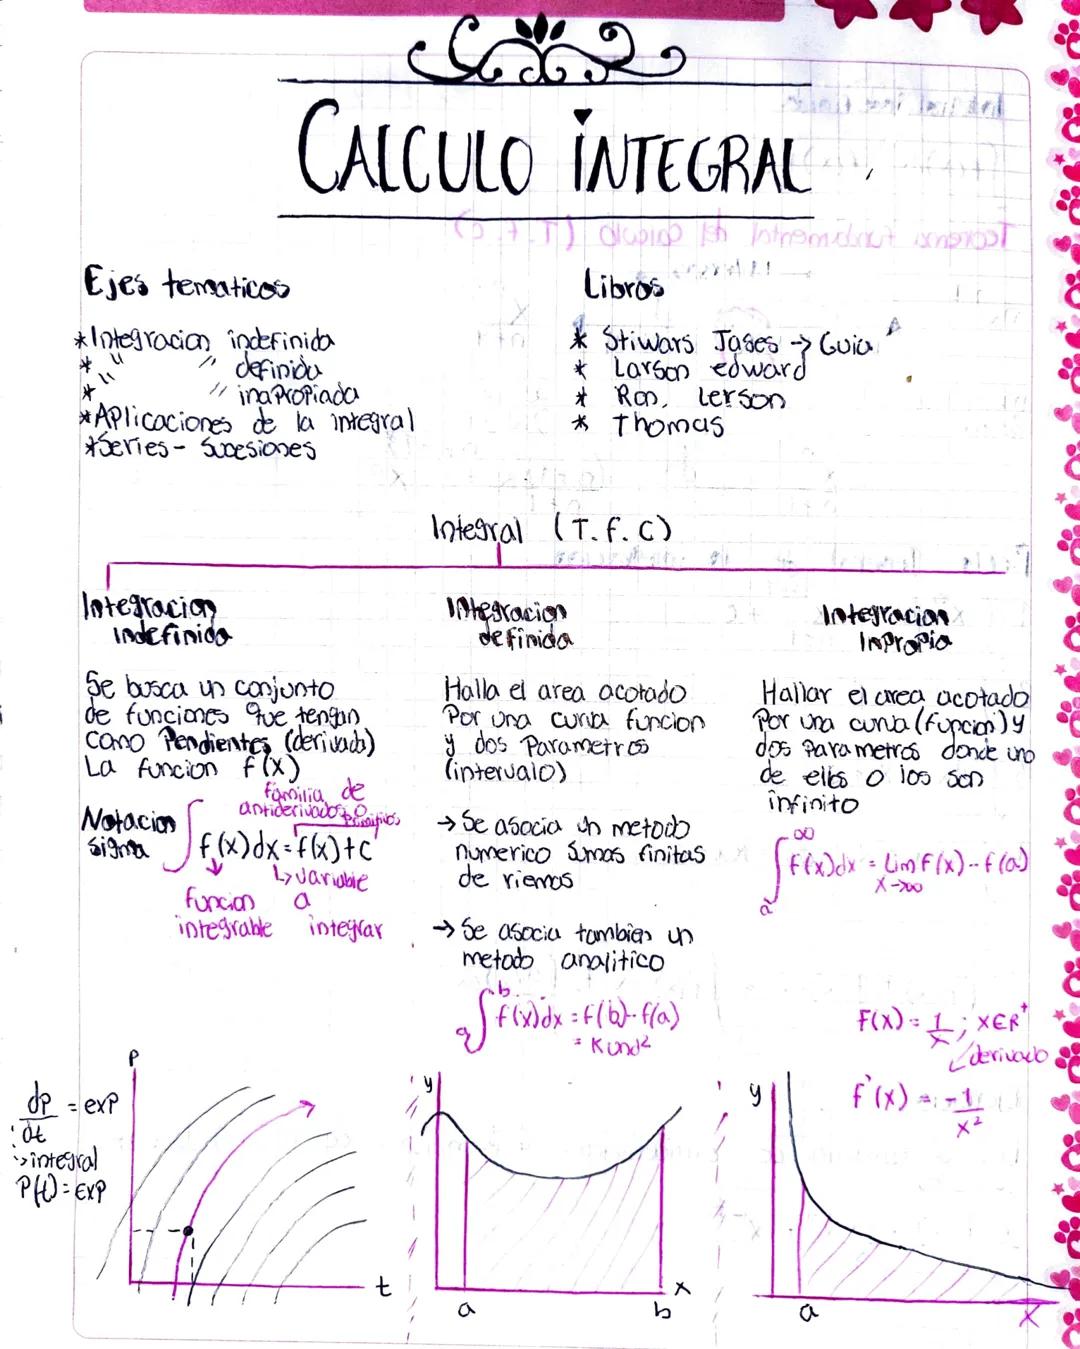 CALCULO INTEGRAL
Ejes tematicos
*Integracion indefinida
* " " definida
* " " inapropiada
*Aplicaciones de la integral
*Series - Sucesiones
Libros
* Stiwars Jases → Guia
* Larson edward
* Ron. Lerson
* Thomas
Integral (T.f.C)
Integracion
indefinida
Se busca un conjunto
de funciones que tengan
como Pendientes (derivada)
La funcion f(x)
familia de
antiderivados o
primitivos
Notacion
sigma
∫ f(x)dx = f(x)+c
↳ variable
a
integrar
funcion
integrable
Integracion
definida
Halla el area acotado
Por una curva funcion
y dos Parametros
(intervalo)
→ Se asocia un metodo
numerico sumas finitas
de riemas
→ Se asocia tambien un
metodo analitico
∫ₐᵇ f(x)dx = f(b)-f(a)
= K und²
Integracion
Inpropia
Hallar el area acotado
Por una curva (funcion) y
dos parametros donde uno
de ellos o los son
infinito
∫ₐ^∞ f(x)dx = Lim f(x) - f(a)
x→∞
F(x) = 1/x ; x∈R⁺
derivado
f'(x) = -1/x²
P
dp/dt = exp
integral
P(t) = exp
t
y
a
b
x
y
a
x
Teorema fundamental del calculo (T.f.c)